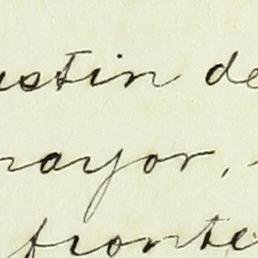 ustin de
mayor,
fronte